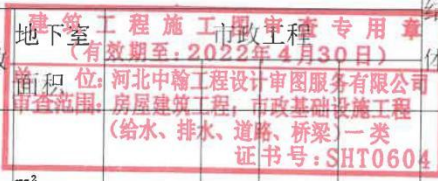 建筑工程施工图审查专用章
地下室 市政工程
(有效期至:2022年4月30日)
面积
单位:河北中翰工程设计审图服务有限公司
审查范围:房屋建筑工程,市政基础设施工程
(给水、排水、道路、桥梁)一类
证书号:SHT0604
m²